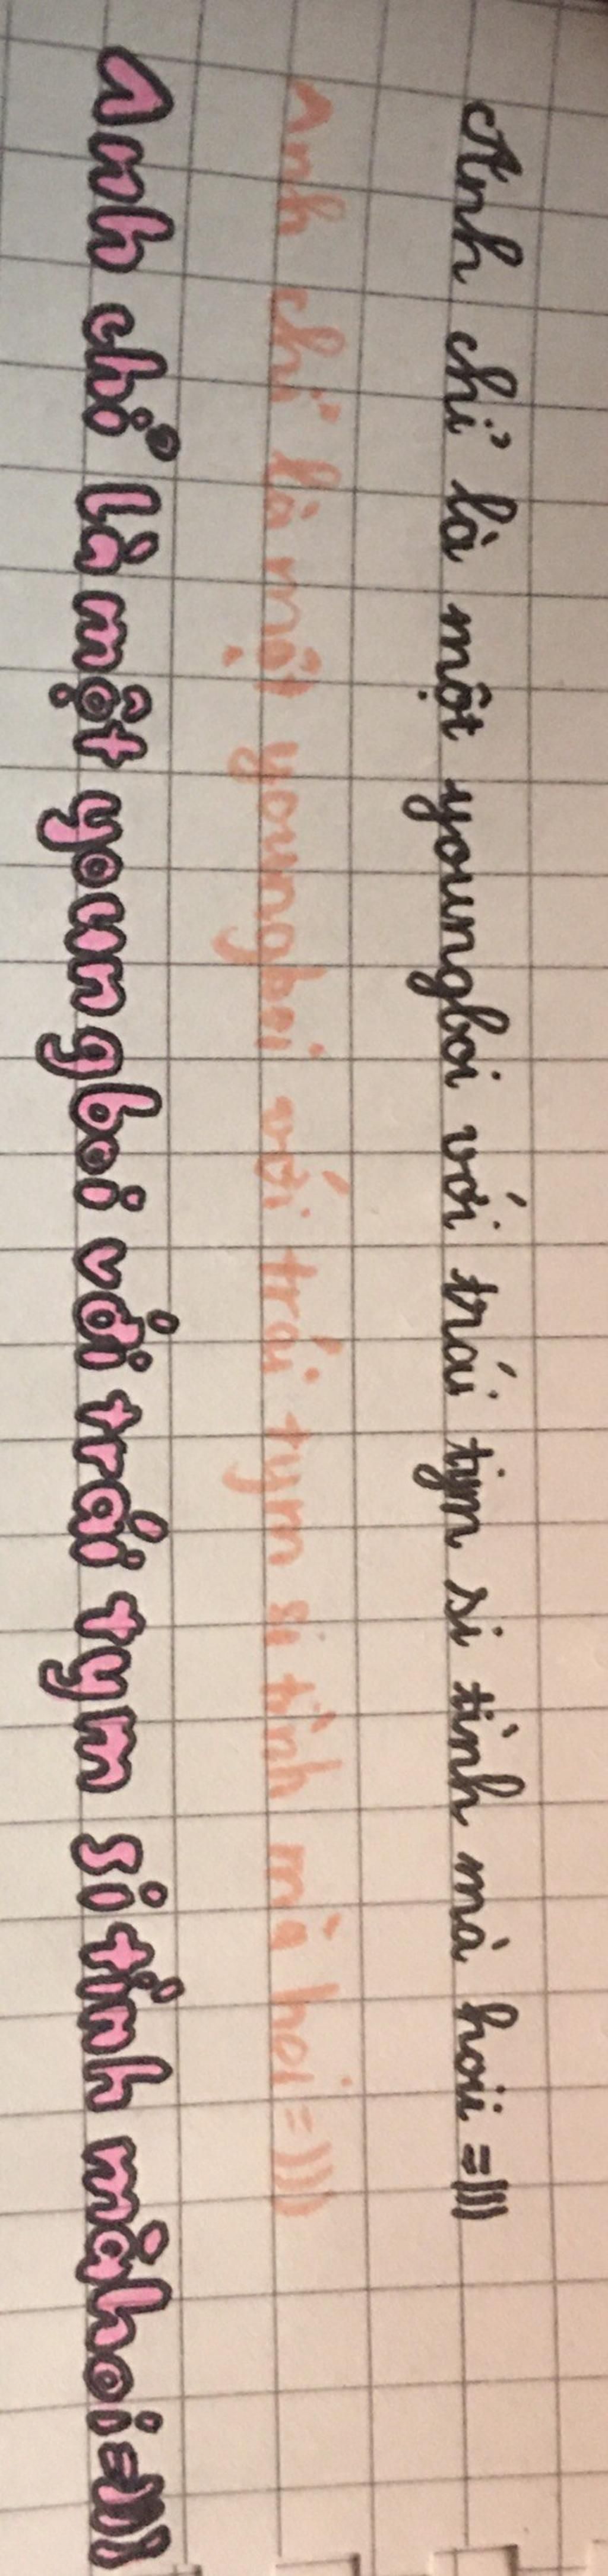 Anh chỉ là một youngboi với trái tym si tình mà hoii =)))
Anh chỉ là một youngboi với trái tym si tình mà hoi =)))
Anh chỉ là một youngboi với trái tym si tình mà hoi =)))